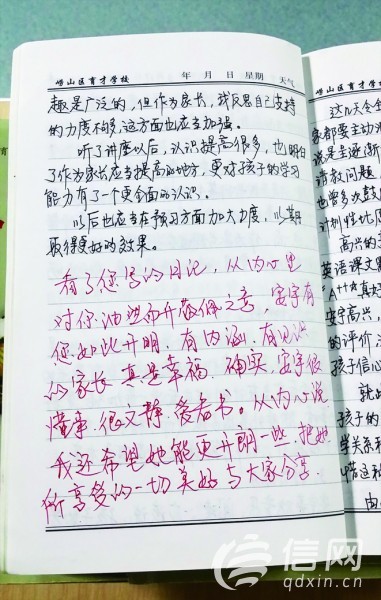 崂山区育才学校 年 月 日 星期 天气
趣是广泛的，但作为家长，我反思自己支持
的力度不够，这方面也应当加强。
听了讲座以后，认识提高很多，也明白
了作为家长应当提高的地方，更对孩子的学习
能力有了一个更全面的认识。
以后也应当在预习方面加大力度，以期
取得更好的效果。
看了您写的日记，从内心里
对你油然而升敬佩之意，安宇有
您如此开明、有内涵、有见识
的家长真是幸福。确实，安宇很
懂事、很文静、爱看书。从内心说
我还希望她能更开朗一些，把她
所享受的一切美好与大家分享.
崂山区育
这几天
家都要主动
说是主逐渐
请教问题
也曾多次鼓
对制性比
高兴的
英语课文
"A++"真
安宇高兴，
的评价
孩子信心
就
孩子的
学关系
喏这种
由
信网
qdxin.cn